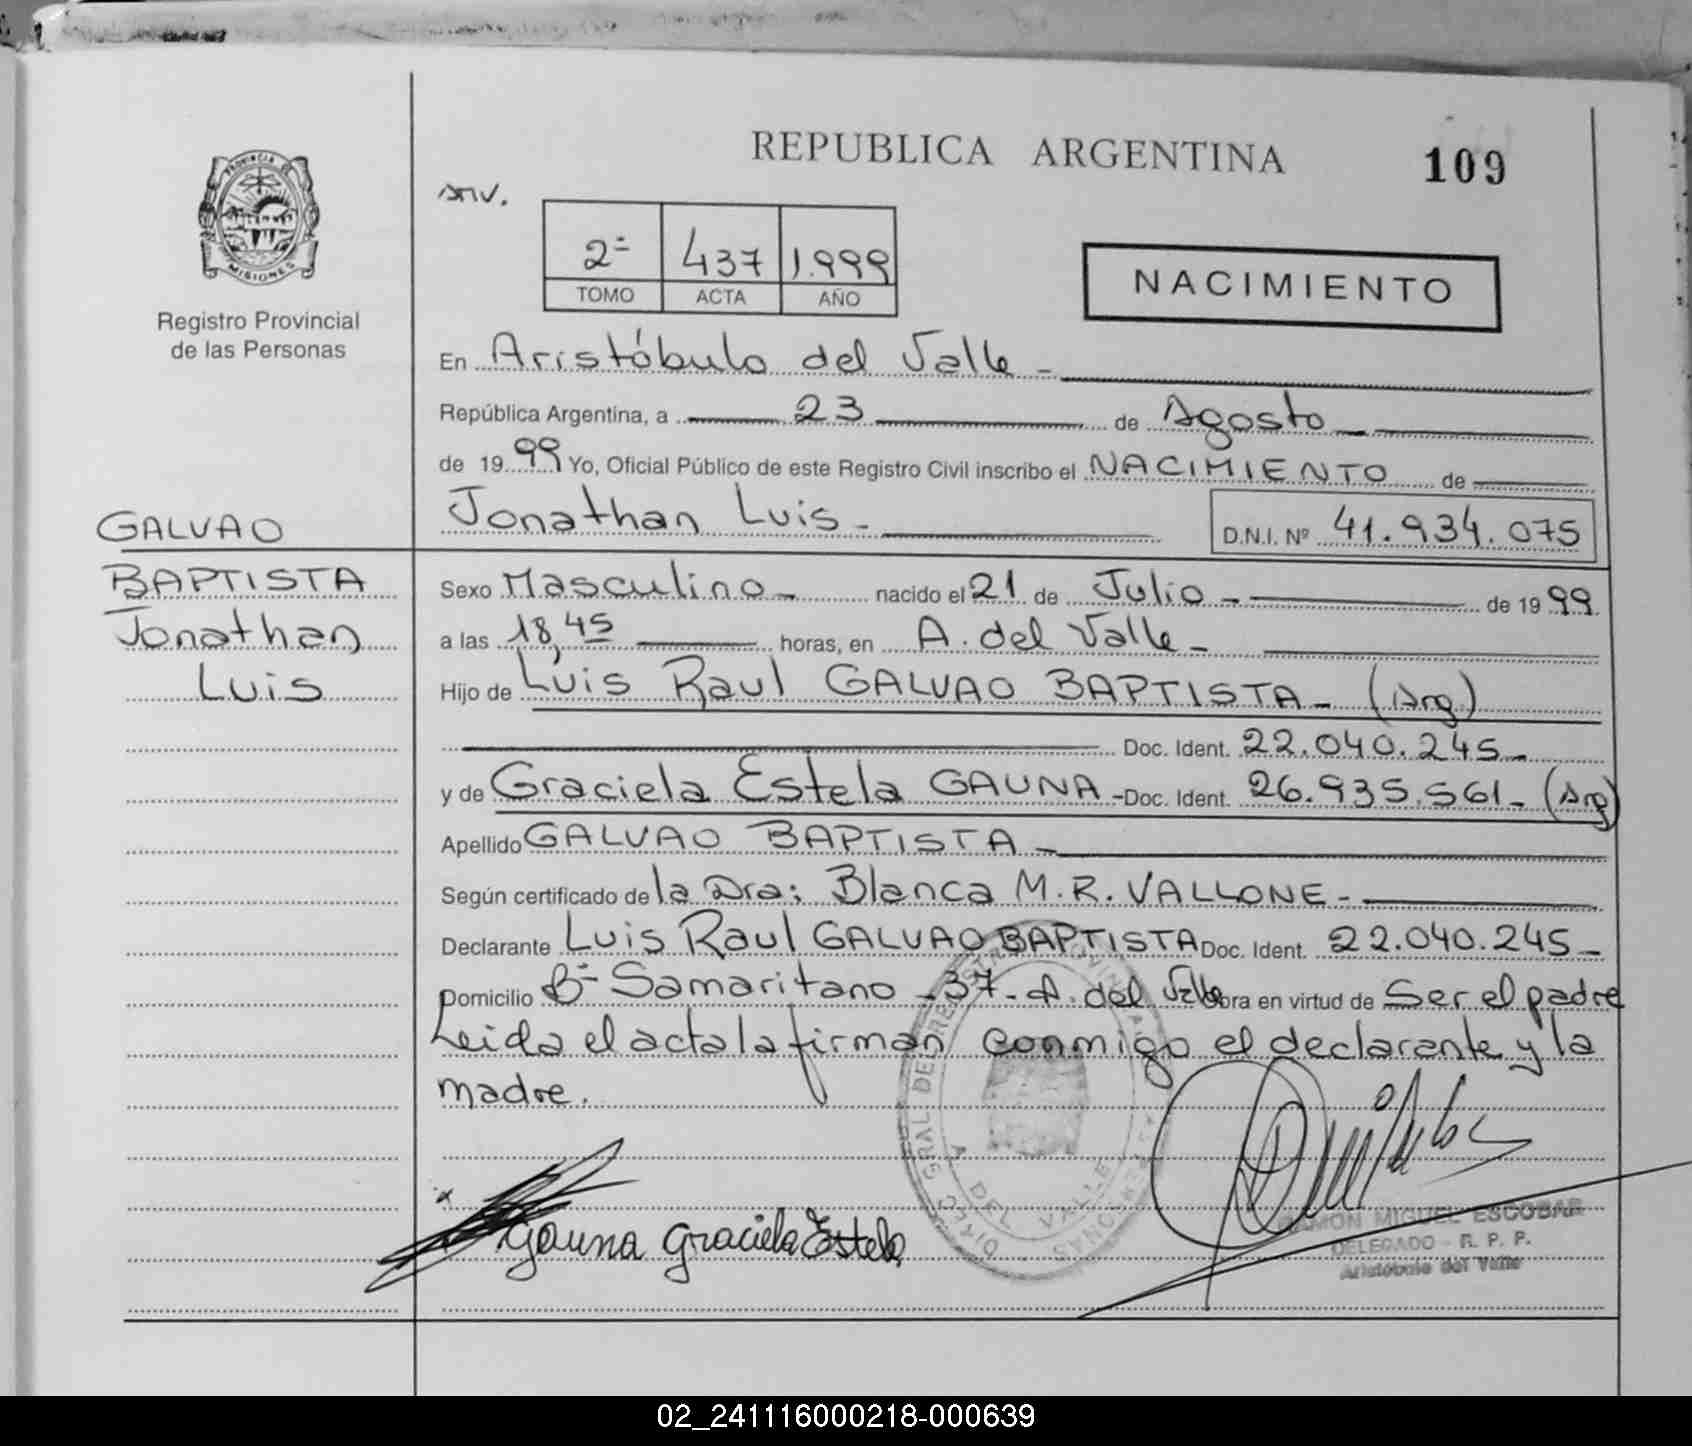 REPUBLICA ARGENTINA
109
PROVINCIA DE
MISIONES
Registro Provincial
de las Personas
2=
437
1.999
TOMO
ACTA
AÑO
NACIMIENTO
En Aristóbulo del Valle -
República Argentina, a 23 de Agosto
de 19 99 Yo, Oficial Público de este Registro Civil inscribo el NACIMIENTO de
Jonathan Luis - D.N.I. Nº 41.934.075
GALVAO
BAPTISTA
Jonathan
Luis
Sexo Masculino - nacido el 21 de Julio - de 19 99
a las 18,45 horas, en A. del Valle -
Hijo de Luis Raul GALVAO BAPTISTA - (Arg)
Doc. Ident. 22.040.245 -
y de Graciela Estela GAUNA - Doc. Ident. 26.935.561 - (Arg)
Apellido GALVAO BAPTISTA -
Según certificado de la Dra; Blanca M.R. VALLONE -
Declarante Luis Raul GALVAO BAPTISTA Doc. Ident. 22.040.245 -
Domicilio B= Samaritano - 37 - A. del Valle Obra en virtud de Ser el padre
Leida el acta la firman conmigo el declarante y la
madre.
Gauna Graciela Estela
RAMON MIGUEL ESCOBAR
DELEGADO - R. P. P.
Aristóbulo del Valle
02_241116000218-000639